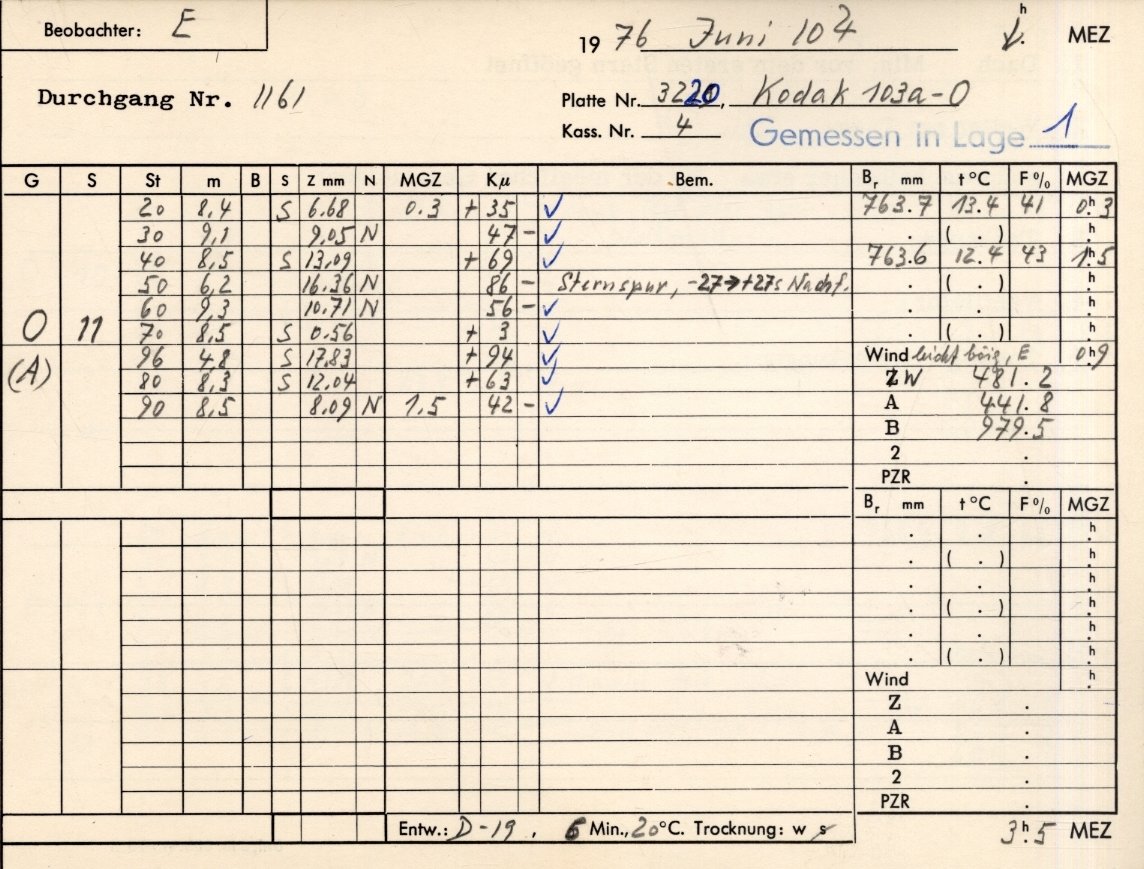 Beobachter: E
1976 Juni 10 h MEZ
Durchgang Nr. 1161
Platte Nr. 3220, Kodak 103a-O
Kass. Nr. 4 Gemessen in Lage 1
G S St m B S Z mm N MGZ Kμ Bem. Br mm t °C F % MGZ
20 8,4 S 6.68 0.3 + 35 ✓ 763.7 13.4 41 0h.3
30 9,1 9.05 N 47 - ✓ . ( . ) h.
40 8,5 S 13,09 + 69 ✓ 763.6 12.4 43 1h.5
50 6,2 16.36 N 86 - Sternspur, -27→+27s Nachf. . ( . ) h.
60 9,3 10.71 N 56 - ✓ . . h.
O 11 70 8,5 S 0.56 + 3 ✓ . ( . ) h.
(A) 96 4.8 S 17.83 + 94 ✓ Wind leicht böig, E 0h9
80 8,3 S 12.04 + 63 ✓ Z W 481.2
90 8,5 8.09 N 1.5 42 - ✓ A 441.8
B 979.5
2 .
PZR .
Br mm t °C F % MGZ
. . h.
. ( . ) h.
. . h.
. ( . ) h.
. . h.
. ( . ) h.
Wind h.
Z .
A .
B .
2 .
PZR .
Entw.: D-19, 6 Min., 20°C. Trocknung: w s 3h.5 MEZ